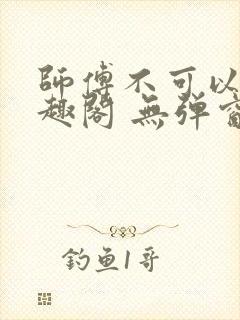 師傅不可以
趣閣 無彈窗
钓鱼1哥